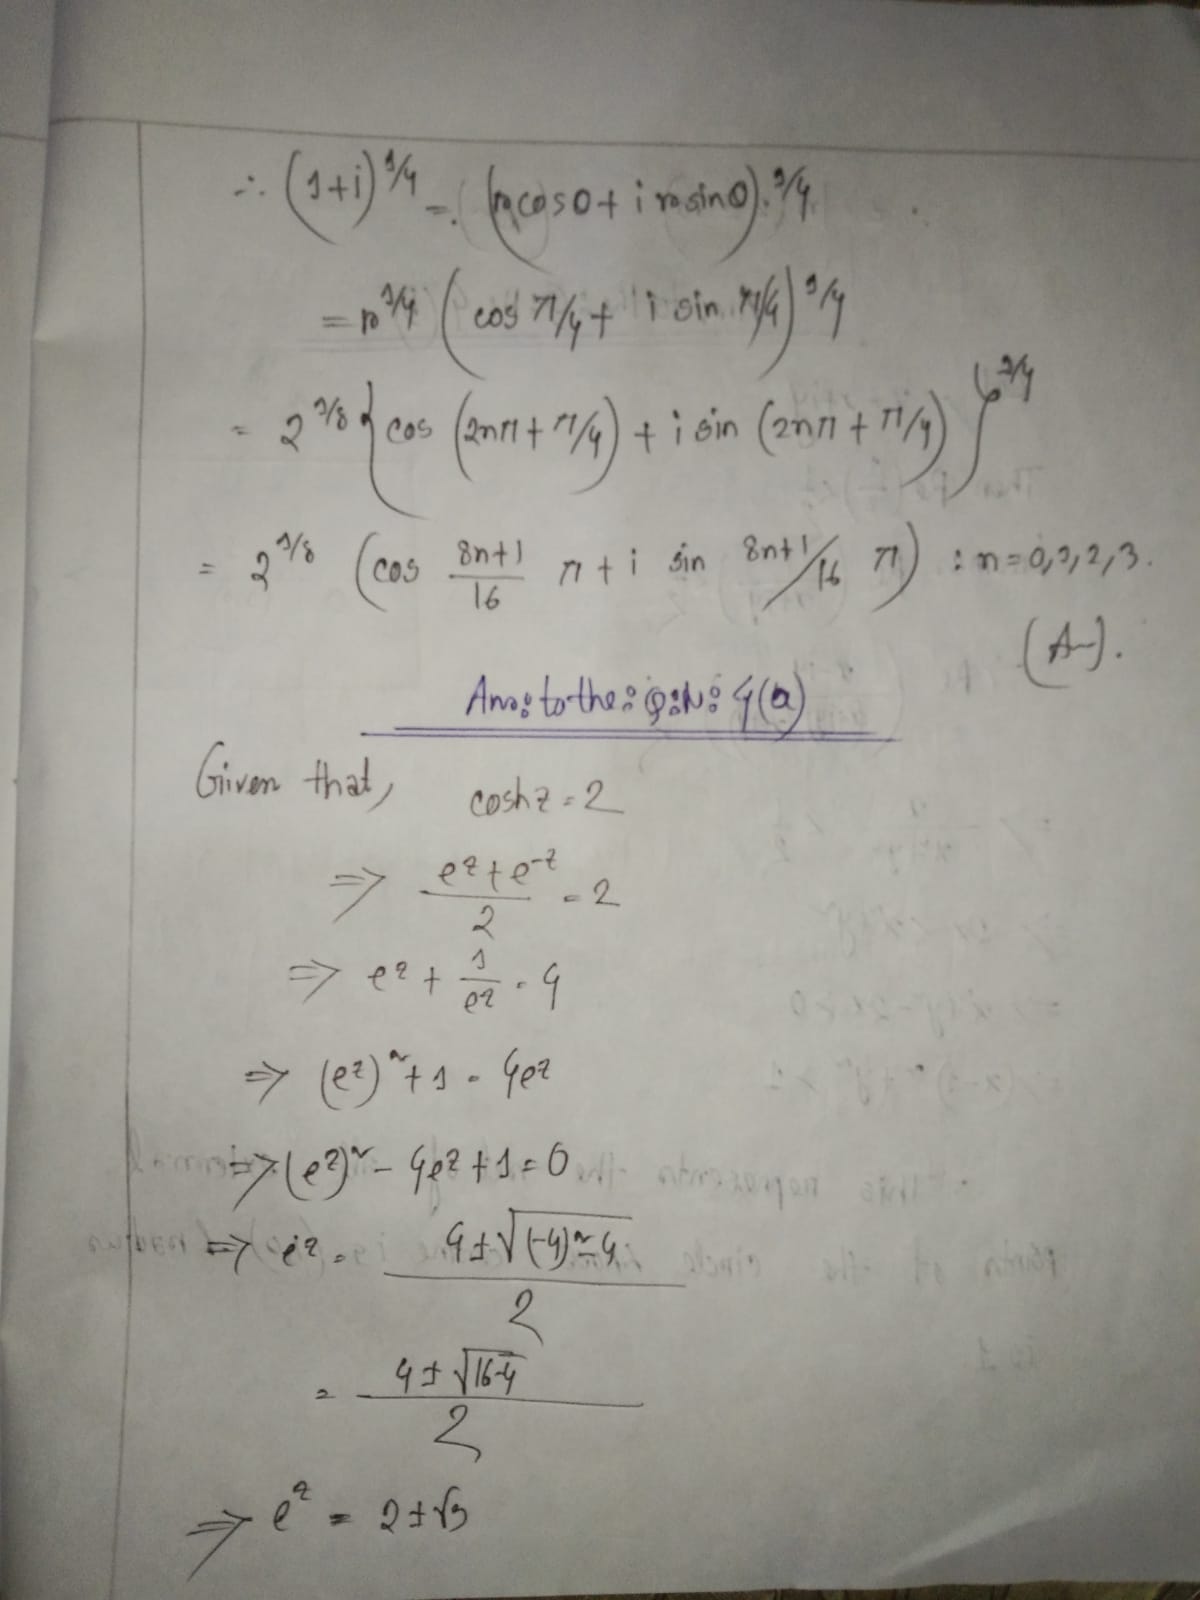 ∴ (1+i)^1/4 = (r cosθ + i r sinθ)^1/4
= r^1/4 (cos π/4 + i sin π/4)^1/4
= 2^1/8 {cos (2nπ + π/4) + i sin (2nπ + π/4)}^1/4
= 2^1/8 (cos 8n+1/16 π + i sin 8n+1/16 π) : n=0,1,2,3.
(A).
Ans: to the: Q: N: 4(a)
Given that, coshz = 2
⇒ e^z + e^-z / 2 = 2
⇒ e^z + 1/e^z = 4
⇒ (e^z)^2 + 1 = 4e^z
⇒ (e^z)^2 - 4e^z + 1 = 0
⇒ e^z = 4 ± √(-4)^2 - 4 / 2
= 4 ± √16-4 / 2
⇒ e^z = 2 ± √3